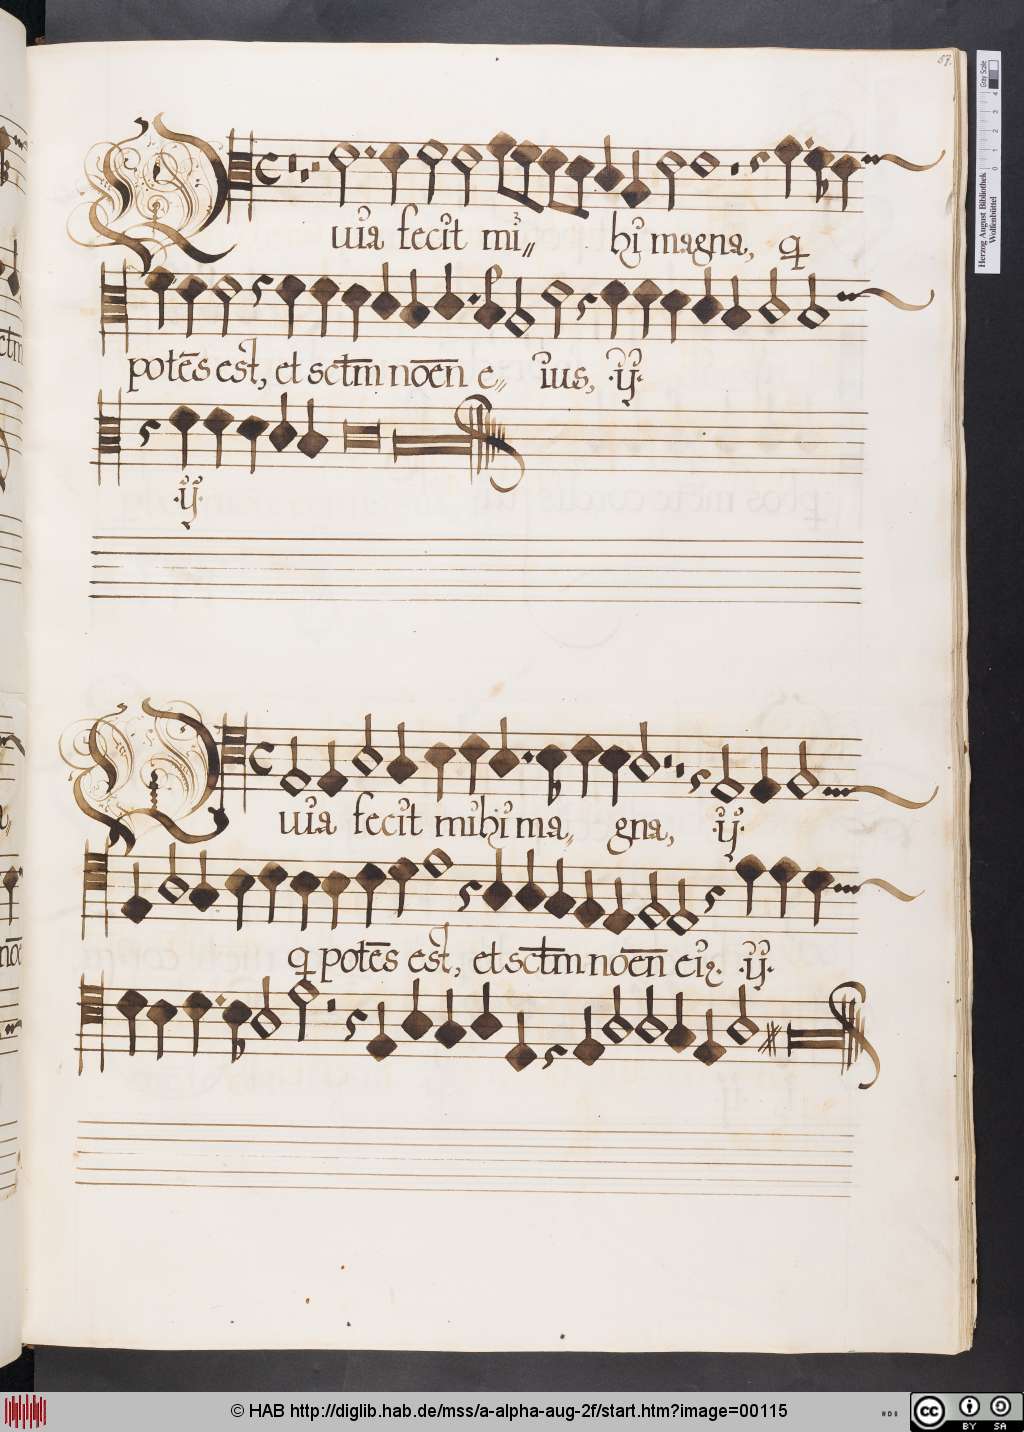 57.
Quia fecit mi〃 hi magna, q̄
potēs est, et sctm noēn e〃 ius, .ij.
.ij.
Quia fecit mihi ma〃 gna, .ij.
q̄ potēs est, et sctm noēn eiꝰ. .ij.
Herzog August Bibliothek
Wolfenbüttel
Gray Scale
0 1 2 3 4
© HAB http://diglib.hab.de/mss/a-alpha-aug-2f/start.htm?image=00115
cc BY SA